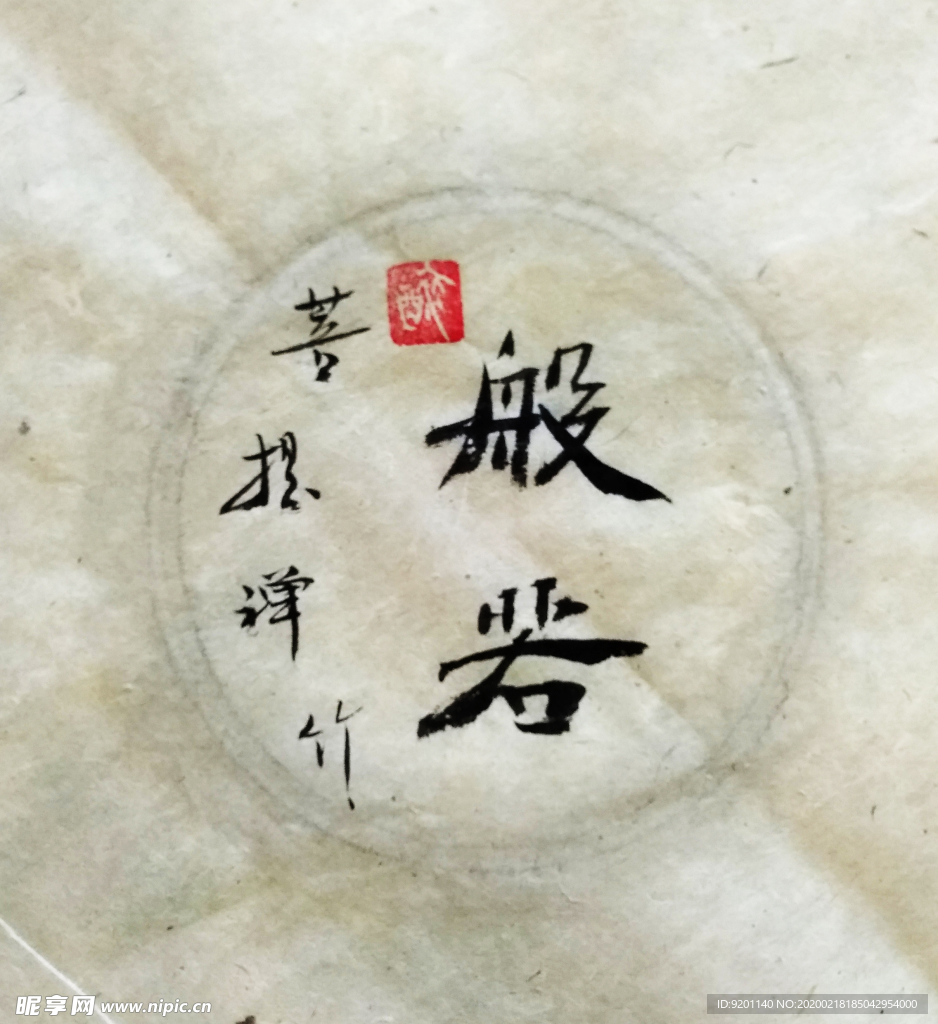 般若
菩提禅竹
昵享网 www.nipic.cn
ID:9201140 NO:20200218185042954000